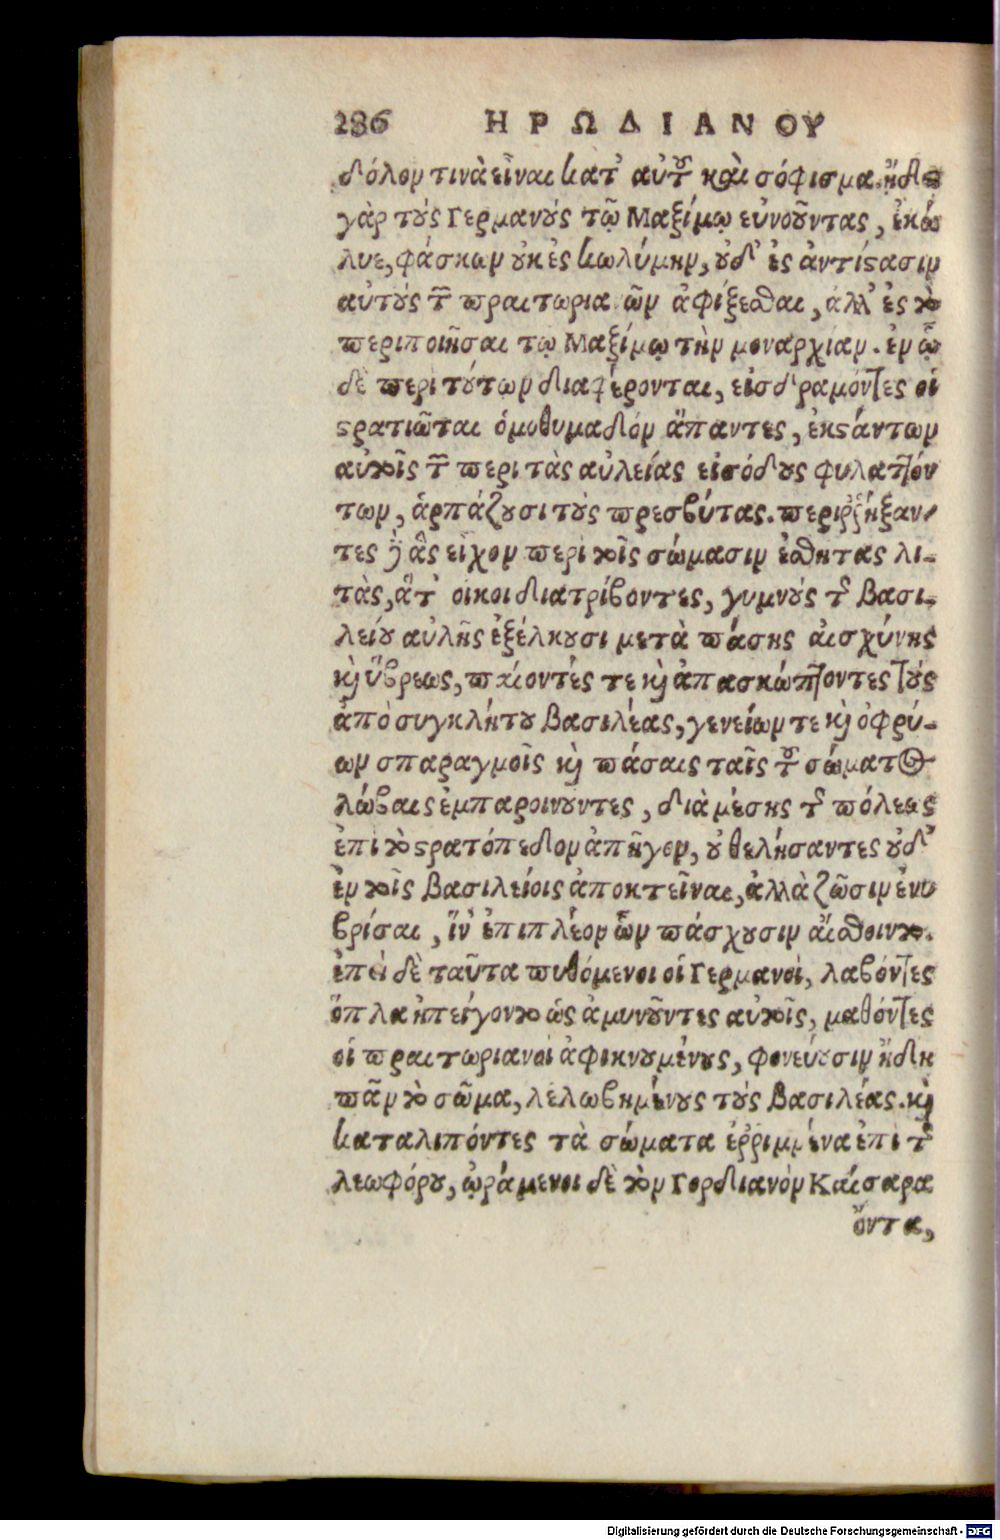 286 ΗΡΩΔΙΑΝΟΥ
δόλον τινὰ εἶναι κατ' αὐτοῦ καὶ σόφισμα. ᾔδει
γὰρ τοὺς Γερμανοὺς τῷ Μαξίμῳ εὐνοοῦντας, ἐκώ
λυε, φάσκων οὐκ ἐς κωλύμην, οὐδ' ἐς ἀντίστασιν
αὐτοὺς τῶν πραιτωριανῶν ἀφίξεσθαι, ἀλλ' ἐς τὸ
περιποιῆσαι τῷ Μαξίμῳ τὴν μοναρχίαν. ἐν ᾧ
δὲ περὶ τούτων διαφέρονται, εἰσδραμόντες οἱ
στρατιῶται ὁμοθυμαδὸν ἅπαντες, ἐκστάντων
αὐτοῖς τῶν περὶ τὰς αὐλείας εἰσόδους φυλαττόν
των, ἁρπάζουσι τοὺς πρεσβύτας. περιῤῥήξαν-
τες δὲ ἃς εἶχον περὶ τοῖς σώμασιν ἐσθῆτας λι-
τὰς, ἅτ' οἴκοι διατρίβοντες, γυμνοὺς τῆς βασι-
λείου αὐλῆς ἐξέλκουσι μετὰ πάσης αἰσχύνης
καὶ ὕβρεως, παίοντές τε καὶ ἀπασκώπτοντες τοὺς
ἀπὸ συγκλήτου βασιλέας, γενείων τε καὶ ὀφρύ-
ων σπαραγμοῖς καὶ πάσαις ταῖς τοῦ σώματος
λώβαις ἐμπαροινοῦντες, διὰ μέσης τῆς πόλεως
ἐπὶ τὸ στρατόπεδον ἀπῆγον, οὐ θελήσαντες οὐδ'
ἐν τοῖς βασιλείοις ἀποκτεῖναι, ἀλλὰ ζῶσιν ἐνυ
βρίσαι, ἵν' ἐπιπλέον ὧν πάσχουσιν αἴσθοιντο.
ἐπεὶ δὲ ταῦτα πυθόμενοι οἱ Γερμανοὶ, λαβόντες
ὅπλα ἠπείγοντο ὡς ἀμυνοῦντες αὐτοῖς, μαθόντες
οἱ πραιτωριανοὶ ἀφικνουμένους, φονεύουσιν ἤδη
πᾶν τὸ σῶμα, λελωβημένους τοὺς βασιλέας. καὶ
καταλιπόντες τὰ σώματα ἐῤῥιμμένα ἐπὶ τῆς
λεωφόρου, ᾠράμενοι δὲ τὸν Γορδιανὸν Καίσαρα
ὄντα,
Digitalisierung gefördert durch die Deutsche Forschungsgemeinschaft - DFG